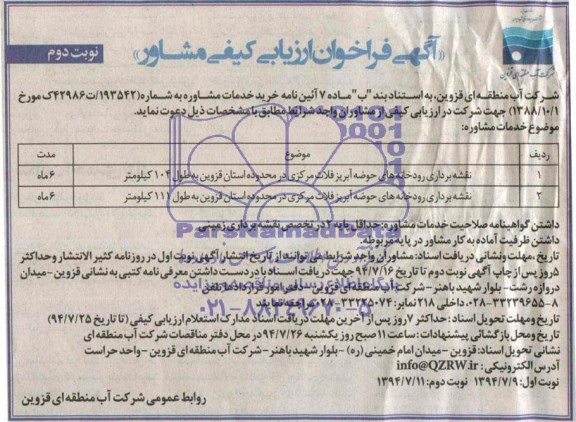 شرکت آب منطقه ای قزوین
«آگهی فراخوان ارزیابی کیفی مشاور»
نوبت دوم
شرکت آب منطقه ای قزوین، به استناد بند "ب" ماده ۷ آئین نامه خرید خدمات مشاوره به شماره (۱۹۳۵۴۲/ت۴۲۹۸۶ک مورخ
۱۳۸۸/۱۰/۱) جهت شرکت در ارزیابی کیفی از مشاوران واجد شرایط مطابق با مشخصات ذیل دعوت نماید.
موضوع خدمات مشاوره:
ردیف موضوع مدت
۱ نقشه برداری رودخانه های حوضه آبریز فلات مرکزی در محدوده استان قزوین به طول ۱۰۴ کیلومتر ۶ماه
۲ نقشه برداری رودخانه های حوضه آبریز فلات مرکزی در محدوده استان قزوین به طول ۱۱۱ کیلومتر ۶ماه
داشتن گواهینامه صلاحیت خدمات مشاوره: حداقل پایه ۲ در تخصص نقشه برداری زمینی
داشتن ظرفیت آماده به کار مشاور در پایه مربوطه.
تاریخ، مهلت ونشانی دریافت اسناد: مشاوران واجد شرایط می توانند از تاریخ انتشار آگهی نوبت اول در روزنامه کثیر الانتشار و حداکثر
۵ روز پس از چاپ آگهی نوبت دوم تا تاریخ ۹۴/۷/۱۶ جهت دریافت اسناد با در دست داشتن معرفی نامه کتبی به نشانی قزوین-میدان
دروازه رشت- بلوار شهید باهنر- شرکت آب منطقه ای قزوین - دفتر امور قراردادها تلفن
۸-۳۳۲۳۹۶۵۵-۰۲۸ داخلی ۲۱۸ نمابر: ۳۳۲۲۵۰۷۴-۰۲۸ مراجعه نمایند
تاریخ و مهلت تحویل اسناد: حداکثر ۷ روز پس از آخرین مهلت دریافت اسناد مدارک استعلام ارزیابی کیفی (تا تاریخ ۹۴/۷/۲۵)
تاریخ و محل بازگشائی پیشنهادات: ساعت ۱۱ صبح روز یکشنبه ۹۴/۷/۲۶ در محل دفتر مناقصات شرکت آب منطقه ای
نشانی تحویل اسناد: قزوین -میدان امام خمینی (ره) - بلوار شهید باهنر -شرکت آب منطقه ای قزوین -واحد حراست
آدرس الکترونیکی: info@QZRW.ir
نوبت اول: ۱۳۹۴/۷/۹ نوبت دوم: ۱۳۹۴/۷/۱۱
روابط عمومی شرکت آب منطقه ای قزوین
ParsNamadData
۰۲۱-۸۸۳۴۹۶۷۰-۵